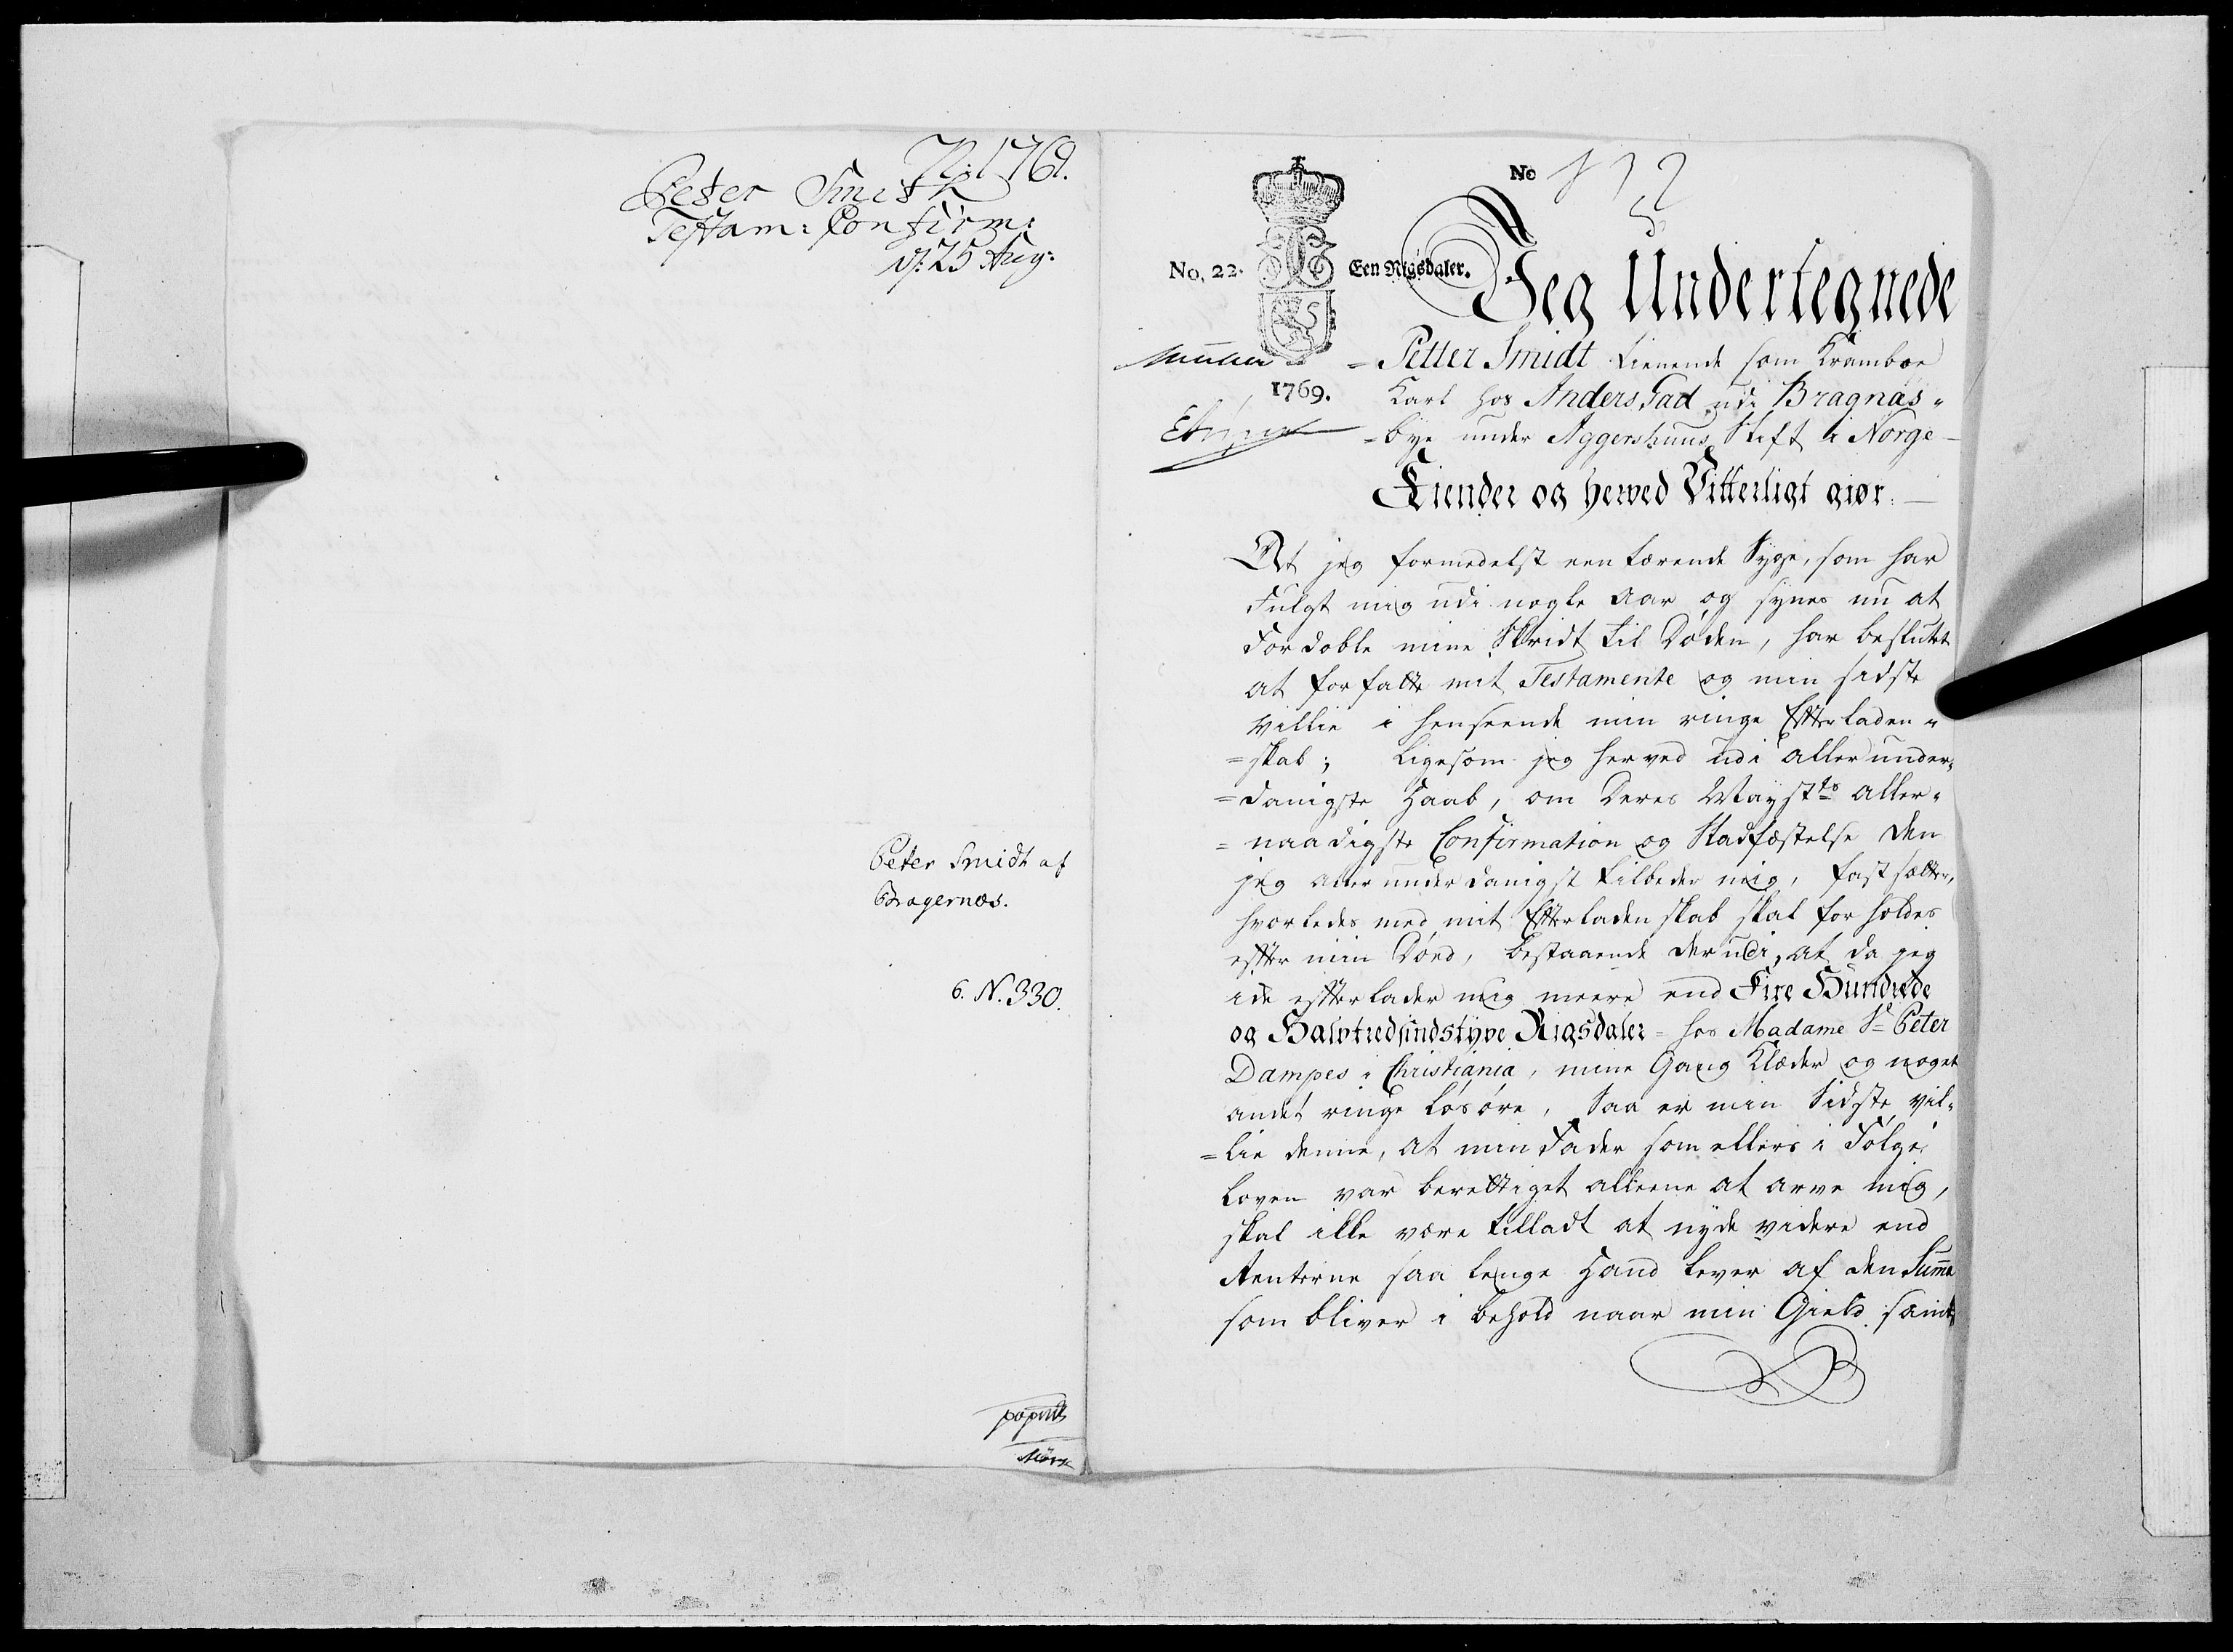 1769.
Peter Smith
Testam: Confirm:
d: 25 Aug:
Peter Smidt af
Bragernæs.
6. N. 330.
No
No. 22.
Een Rigsdaler.
1769.
Jeg Undertegnede
Petter Smidt tienende som Kramboe
Karl hos Anders Fad udi Bragnæs-
-bye under Aggershuus Stift i Norge
Kiender og herved Vitterligt giør
At jeg formedelst een tærende Syge, som har
fulgt mig udi nogle Aar og synes nu at
fordoble mine Skridt til Døden, har besluttet
at forfatte mit Testamente og min sidste
Villie i henseende min ringe Efterladen-
=skab; Ligesom jeg herved udi allerunder-
=danigste Haab, om Deres Mayst:ts aller-
=naadigste Confirmation og Stadfæstelse den
jeg allerunderdanigst tilbeder mig, fastsætter,
hvorledes med mit Efterladenskab skal forholdes
efter min Død, bestaaende derudi, at da jeg
ike efterlader mig meere end Fire Hundrede
og Halvtredsindstyve Rigsdaler hos Madame Sr Peter
Dampes i Christiania, mine Gang Klæder og noget
andet ringe løsøre, Saa er min Sidste vil-
=lie denne, at min Fader som ellers i Følge
Loven var berettiget alleene at arve mig,
skal ikke være tilladt at nyde videre end
Renterne saa lenge Hand lever af den Summa
som bliver i behold naar min Gield samt